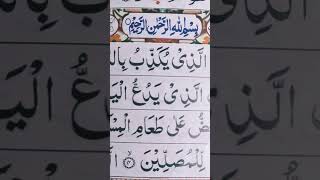 بِسْمِ اللّٰهِ الرَّحْمٰنِ الرَّحِيْمِ
الَّذِیْ یُكَذِّبُ
الَّذِیْ یَدُعُّ الْیَ
ضُّ عَلٰی طَعَامِ الْمِسْ
لِّلْمُصَلِّیْنَ